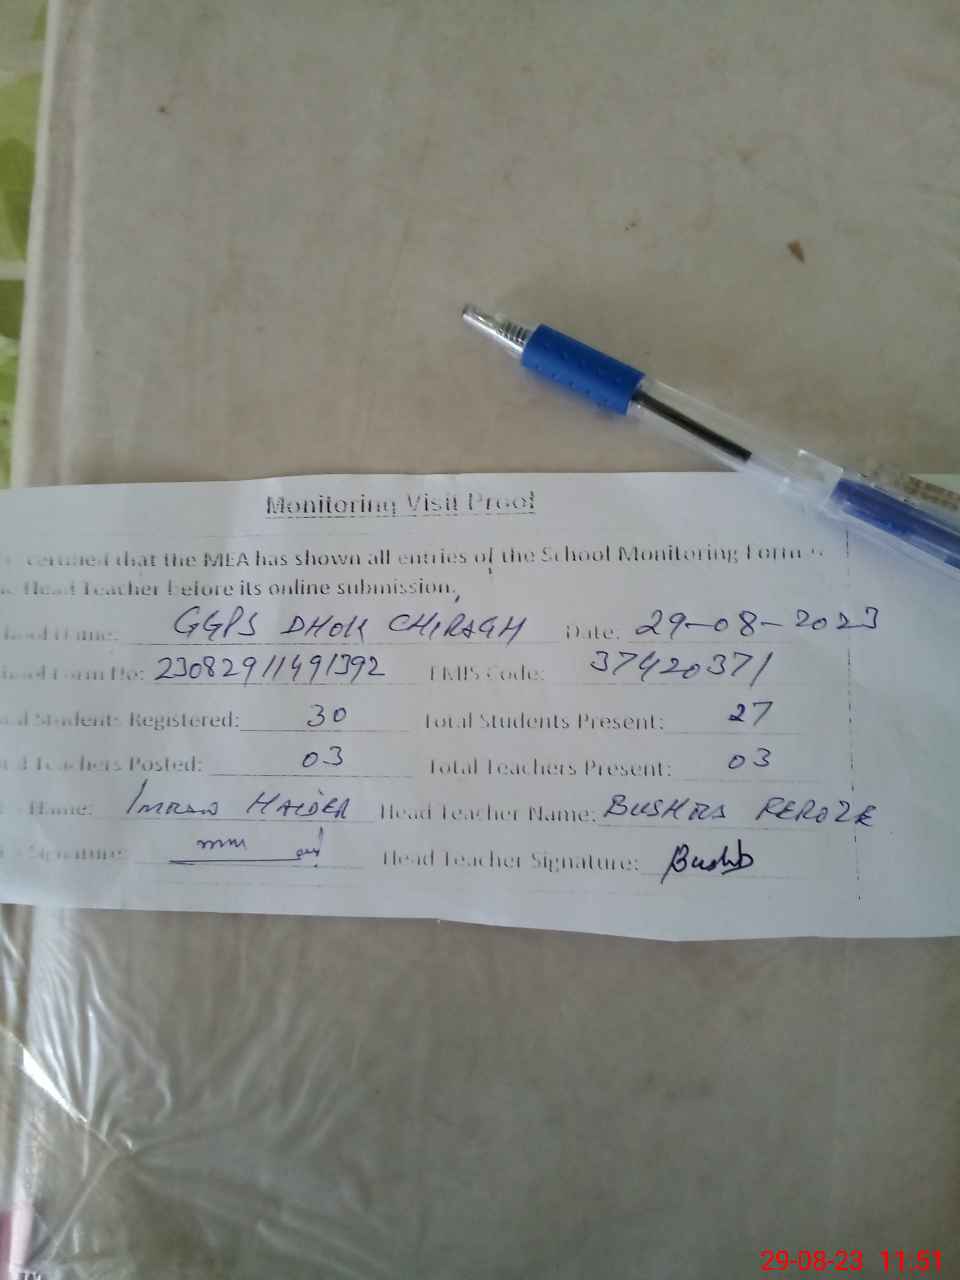 Monitoring Visit Proof
certified that the MEA has shown all entries of the School Monitoring Form
Head Teacher before its online submission.
Name: GGPS DHOK CHIRAGH Date: 29-08-2023
Form No: 23082911491392 EMIS Code: 37420371
Students Registered: 30 Total Students Present: 27
Teachers Posted: 03 Total Teachers Present: 03
Name: IMRAN HAIDER Head Teacher Name: BUSHRA FEROZE
Signature: Head Teacher Signature:
29-08-23 11:51